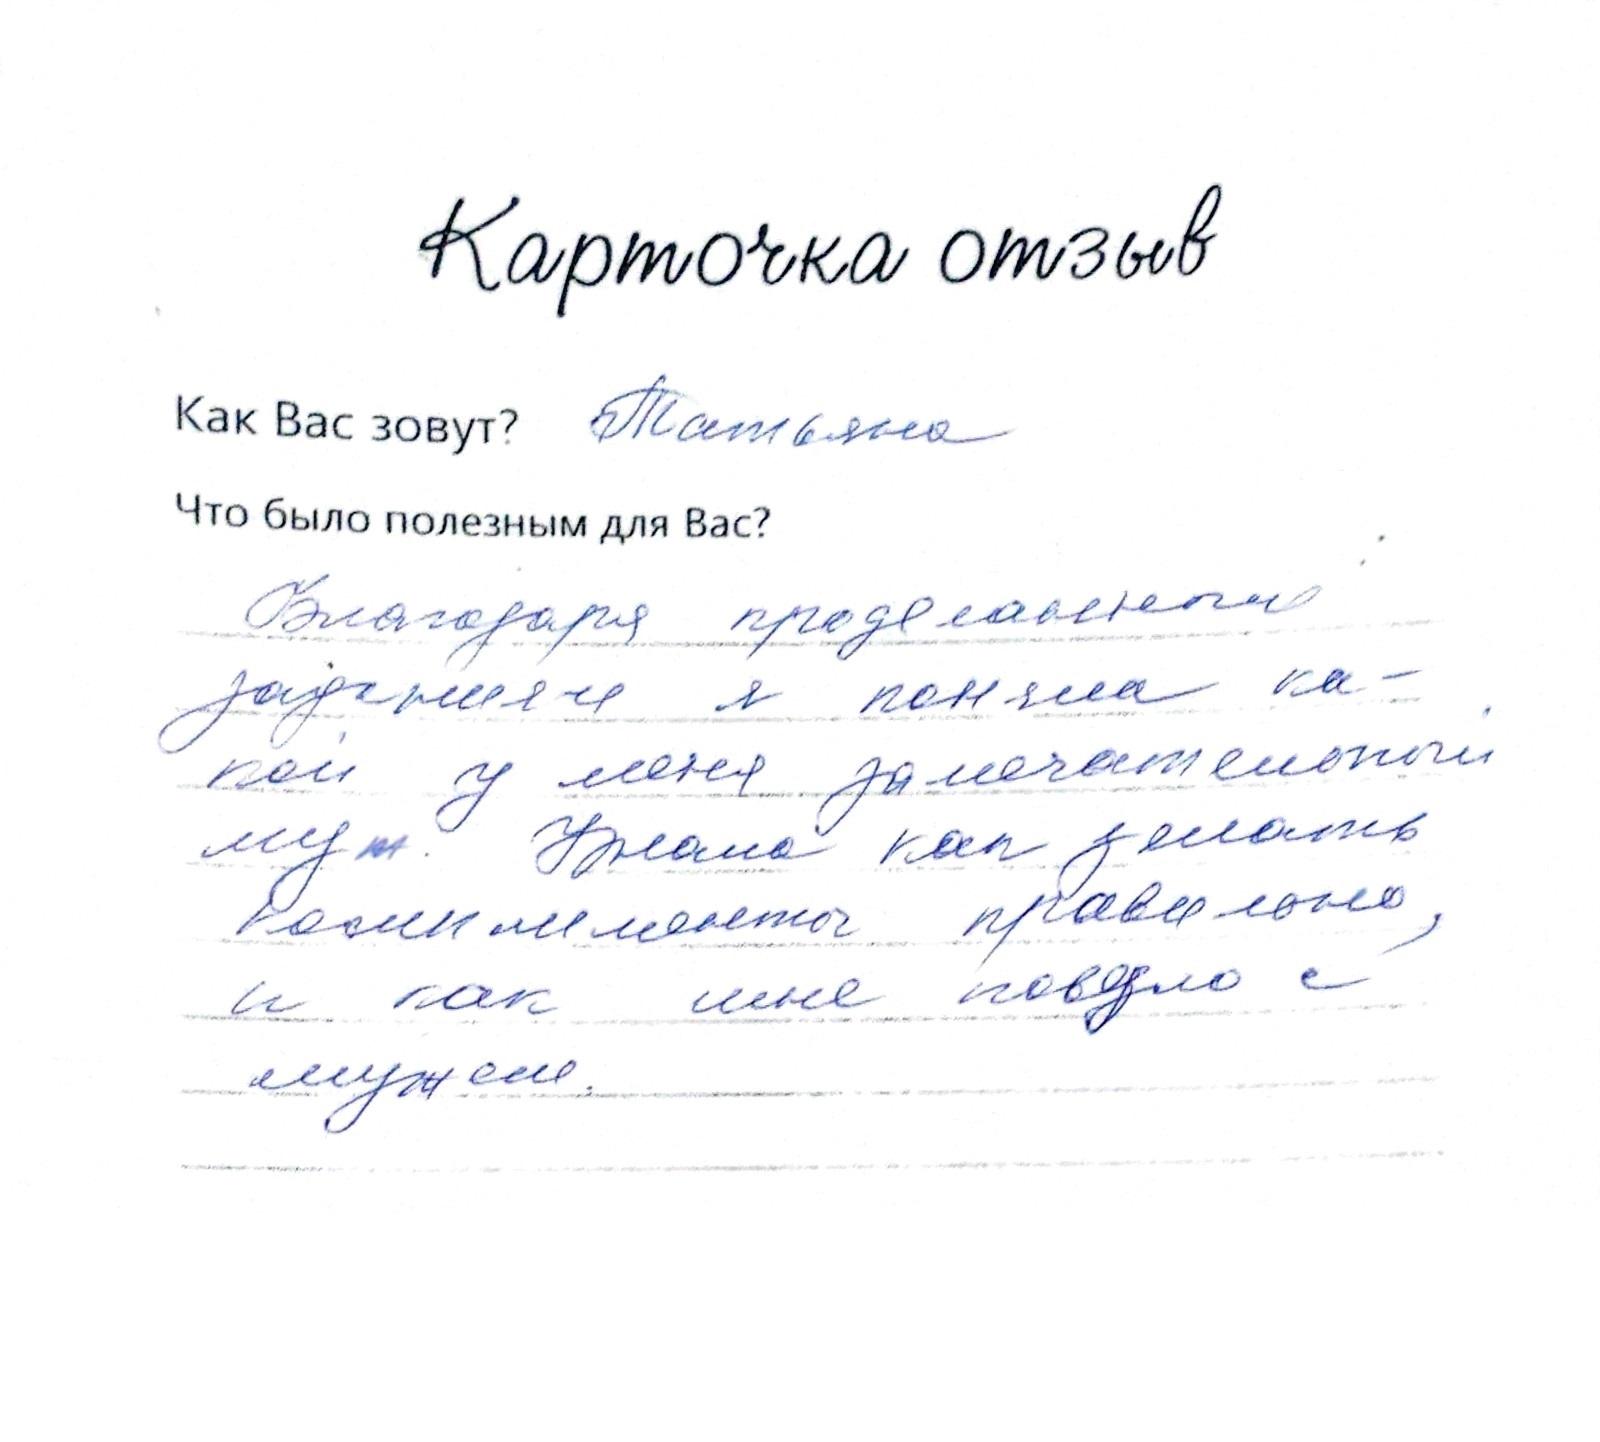 Карточка отзыв
Как Вас зовут? Татьяна
Что было полезным для Вас?
Благодаря проделанным
заданиям я поняла ка-
кой у меня замечательный
муж. Узнала как делать
комплименты правильно,
и как мне повезло с
мужем.